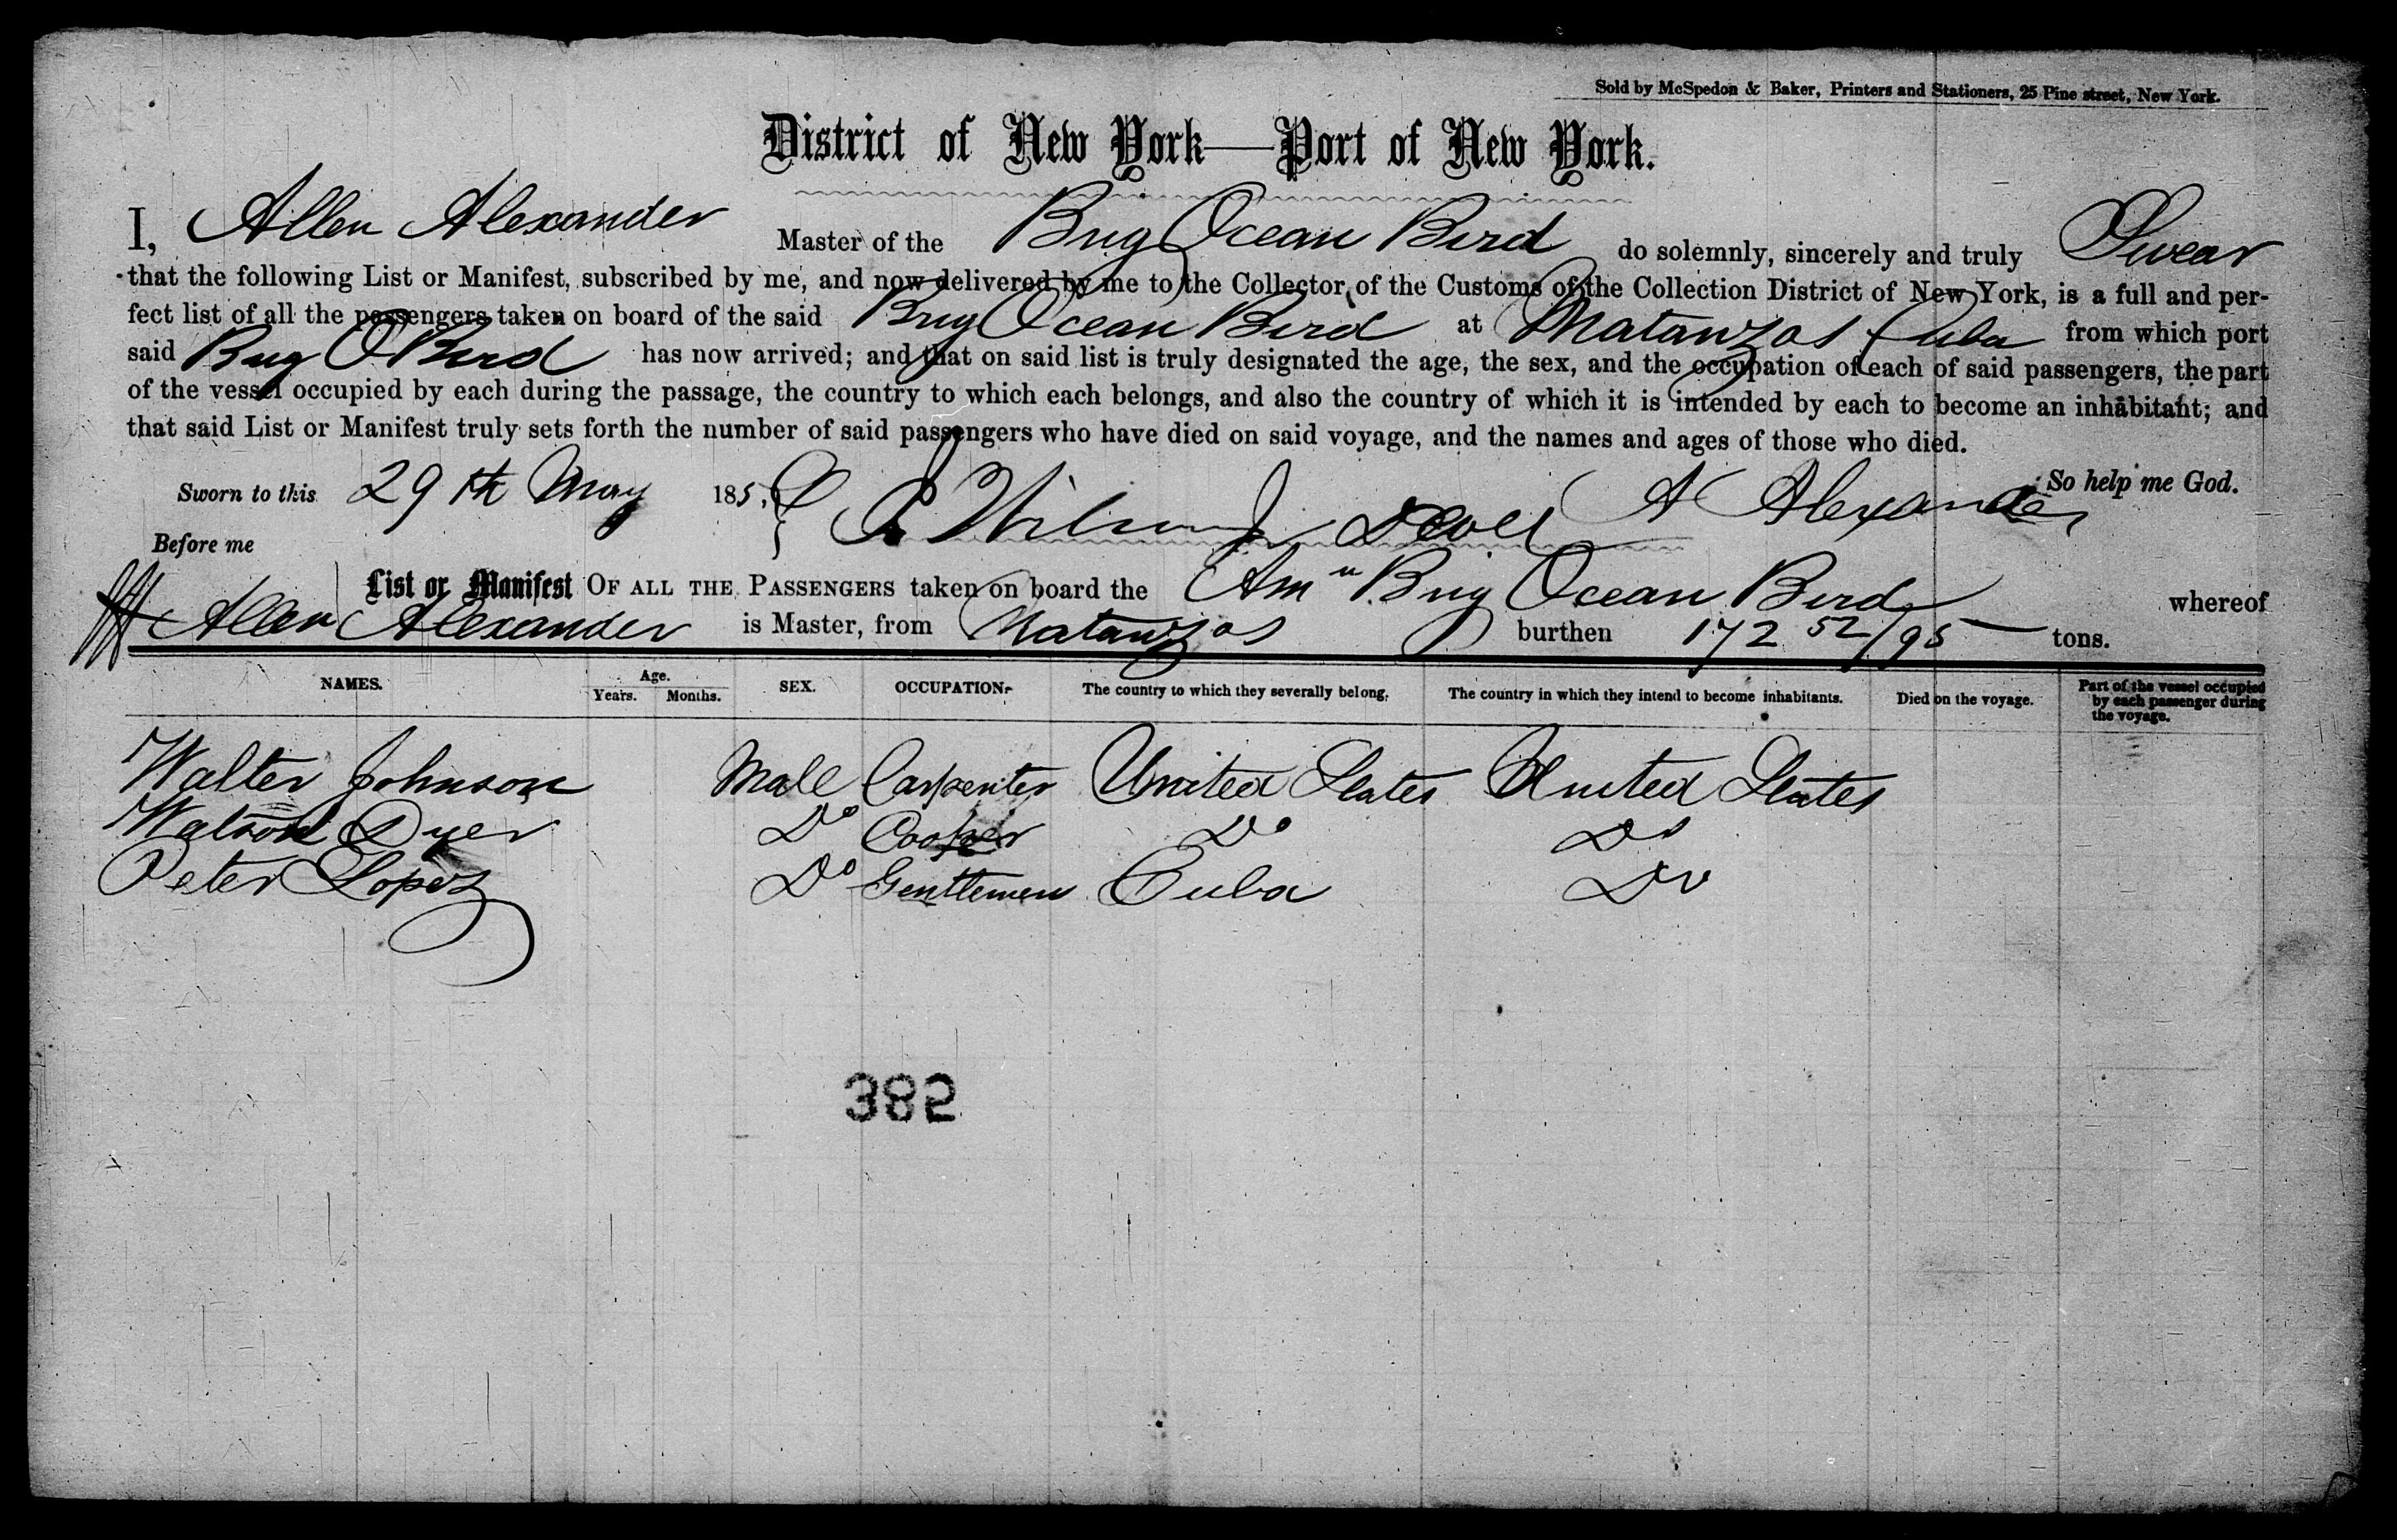 Sold by McSpedon & Baker, Printers and Stationers, 25 Pine street, New York.
District of New York—Port of New York.
I, Allen Alexander Master of the Brig Ocean Bird do solemnly, sincerely and truly Swear
that the following List or Manifest, subscribed by me, and now delivered by me to the Collector of the Customs of the Collection District of New York, is a full and per-
fect list of all the passengers taken on board of the said Brig Ocean Bird at Matanzas Cuba from which port
said Brig O Bird has now arrived; and that on said list is truly designated the age, the sex, and the occupation of each of said passengers, the part
of the vessel occupied by each during the passage, the country to which each belongs, and also the country of which it is intended by each to become an inhabitant; and
that said List or Manifest truly sets forth the number of said passengers who have died on said voyage, and the names and ages of those who died.
Sworn to this 29th May 185 A Alexander So help me God.
Before me
List or Manifest OF ALL THE PASSENGERS taken on board the Amn Brig Ocean Bird whereof
Allen Alexander is Master, from Matanzas burthen 172 52/95 tons.
NAMES. Age. Years. Months. SEX. OCCUPATION. The country to which they severally belong. The country in which they intend to become inhabitants. Died on the voyage. Part of the vessel occupied by each passenger during the voyage.
Walter Johnson Male Carpenter United States United States
Watson Dyer Do Cooper Do Do
Peter Lopez Do Gentlemen Cuba Do
382